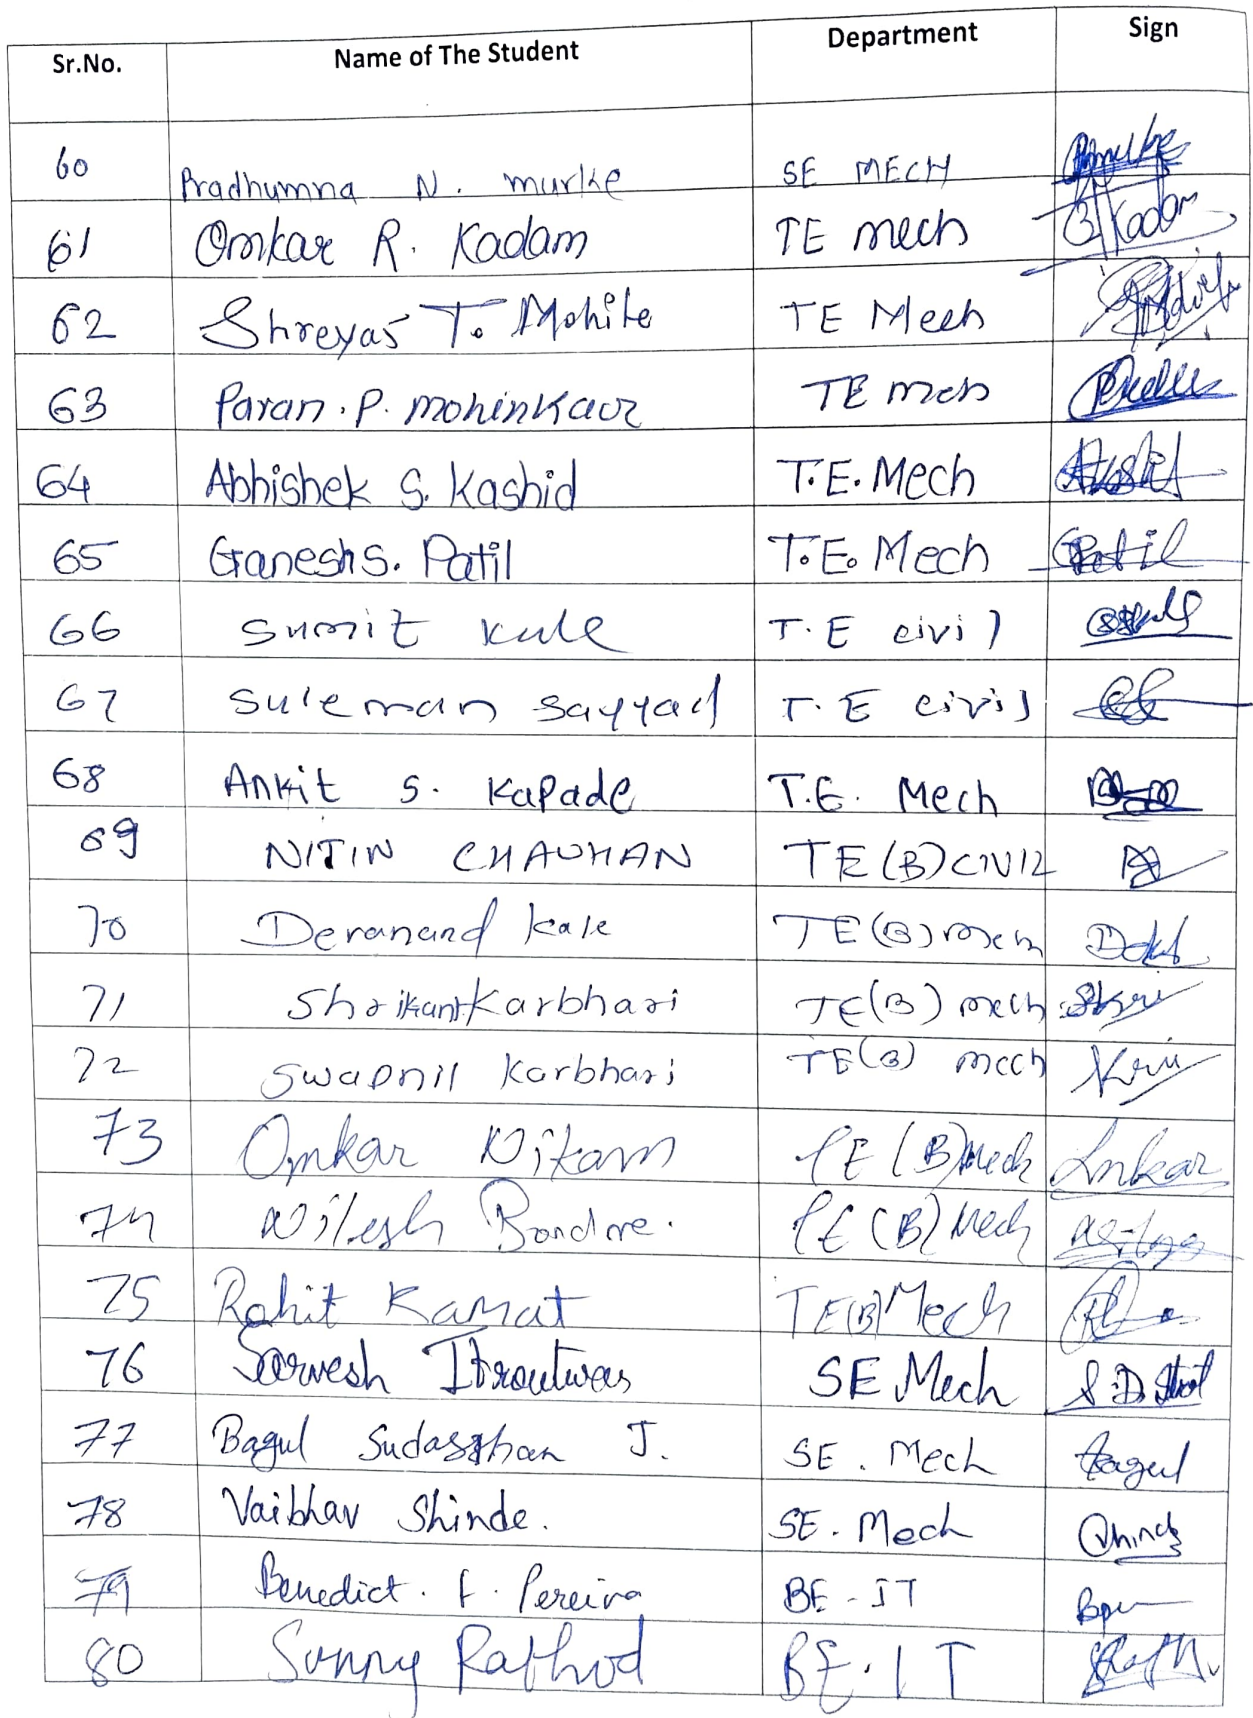 Sr.No. Name of The Student Department Sign
60 Pradhumna N. murke SE MECH
61 Omkar R. Kadam TE mech Kadam
62 Shreyas T. Mohite TE Mech
63 Paran. P. mohinkaor TE mch
64 Abhishek S. Kashid T.E. Mech
65 Ganesh S. Patil T.E. Mech Patil
66 Sumit kule T.E civil
67 suleman sayyad T.E civil
68 Ankit S. Kapade T.E. Mech
69 NITIN CHAUHAN TE (B) CIVIL
70 Devanand kale TE (B) mech
71 Shrikant Karbhari TE (B) mech
72 Swapnil Karbhari TE (B) mech
73 Omkar Nikam TE (B) Mech Omkar
74 Nilesh Bondre. TE (B) Mech
75 Rohit Kamat TE (B) Mech
76 Sarvesh SE Mech
77 Bagul Sudasshan J. SE. Mech Bagul
78 Vaibhav Shinde. SE. Mech
79 Benedict. F. Pereira BE - IT
80 Sunny Rathod BE. IT